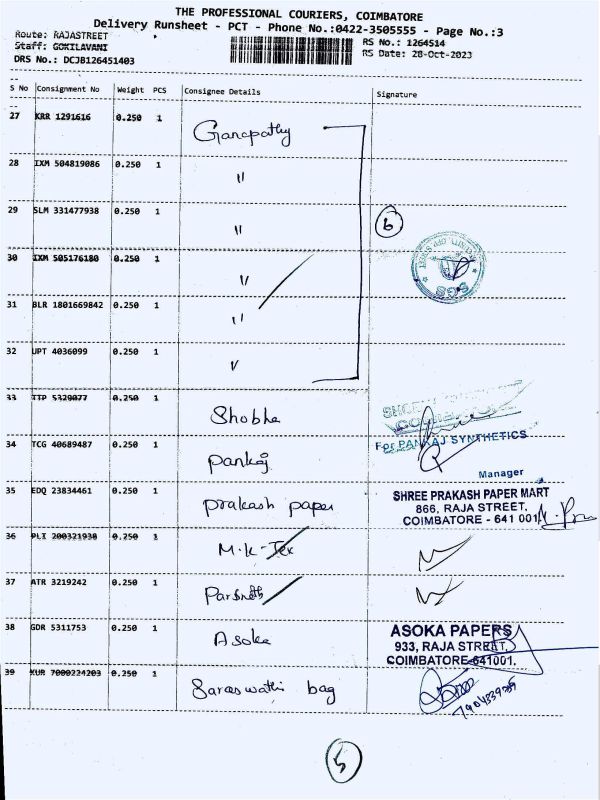 THE PROFESSIONAL COURIERS, COIMBATORE
Delivery Runsheet - PCT - Phone No.:0422-3505555 - Page No.:3
Route: RAJASTREET
Staff: GOKILAVANI
DRS No.: DCJB126451403
RS No.: 1264514
RS Date: 28-Oct-2023
S No Consignment No Weight PCS Consignee Details Signature
27 KRR 1291616 0.250 1 Ganapathy
28 IXM 504819086 0.250 1 "
29 SLM 331477938 0.250 1 "
6
30 IXM 505176180 0.250 1 "
SGS
31 BLR 1801669842 0.250 1 "
32 UPT 4036099 0.250 1 "
33 TTP 5329077 0.250 1 Shobha
COIMBATORE
34 TCG 40689487 0.250 1 Pankaj
For PANKAJ SYNTHETICS
Manager
35 EDQ 23834461 0.250 1 prakash paper
SHREE PRAKASH PAPER MART
866, RAJA STREET,
COIMBATORE - 641 001
36 PLI 200321938 0.250 1 M.K-Tex
37 ATR 3219242 0.250 1 Parsnath
38 GDR 5311753 0.250 1 Asoka
ASOKA PAPERS
933, RAJA STREET,
COIMBATORE-641001.
39 XUR 7000224203 0.250 1 Saraswathi bag
5